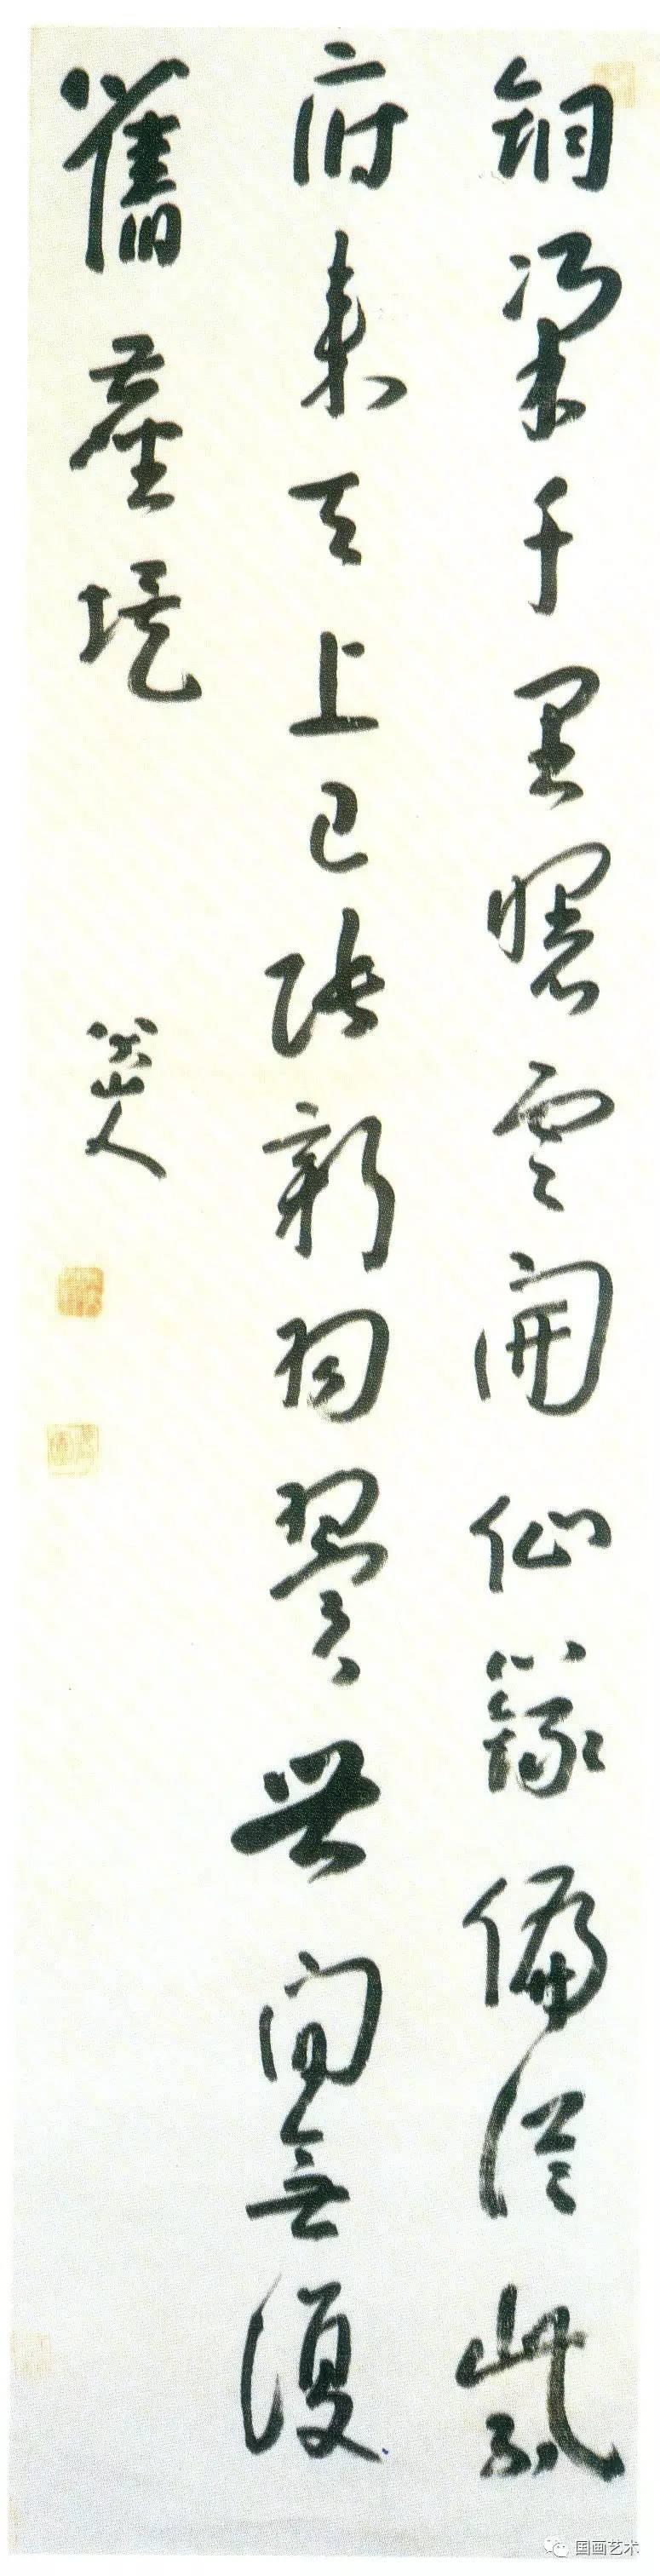 銅梁千里曙雲開仙籙偏從紫
府來天上已張新羽翼世間無復
舊塵埃
八大山人
国画艺术